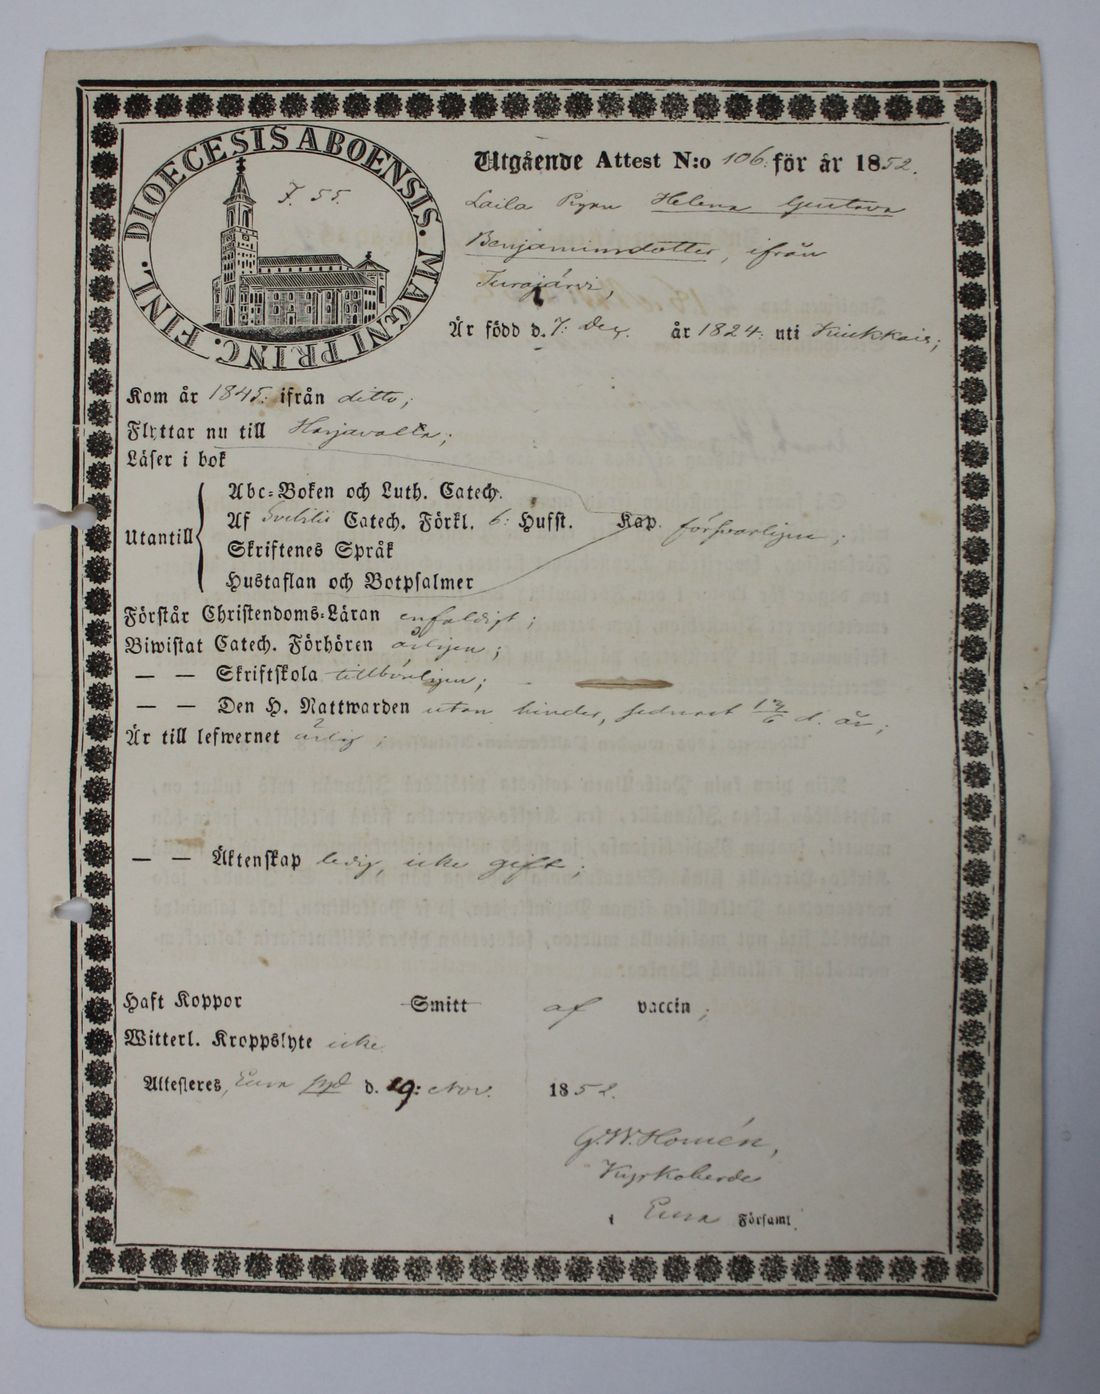 DIOECESIS ABOENSIS. MAGNI PRINC. FINL.
F. 55.
Utgående Attest N:o 106. för år 1852.
Laila Pigan Helena Gustava
Benjaminsdotter, ifrån
Turajärvi,
Är född d. 7: Dec. år 1824: uti Kiukkais;
Kom år 1845: ifrån ditto;
Flyttar nu till Harjavalta;
Läser i bok
Utantill
Abc-Boken och Luth. Catech.
Af Svebilii Catech. Förkl. 6: Hufst. Kap. försvarligen;
Skriftenes Språk
Hustaflan och Botpsalmer
Förstår Christendoms-Läran enfaldigt;
Biwistat Catech. Förhören årligen;
— — Skriftskola tillbörligen;
— — Den H. Nattwarden utan hinder, sednast d. år;
Är till lefwernet ärlig;
— — Äktenskap ledig, icke gift;
Haft Koppor Smitt af vaccin;
Witterl. Kroppslyte icke
Attesteres, Eura d. 19: Nov. 1852.
G. W. Homén,
Kyrkoherde
i Eura Församl.